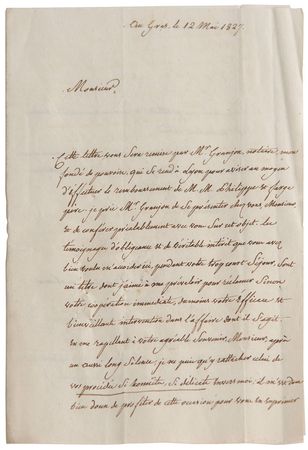 Au Gras, le 12 Mai 1827.
Monsieur,
Cette lettre vous sera remise par Mr. Granjon, notaire, mon
fondé de pouvoir, qui se rend à Lyon pour aviser au moyen
d'effectuer le remboursement de M. M. Philippe &
père. je prie Mr. Granjon de se présenter chez vous, Monsieur,
& de conférer préalablement avec vous sur cet objet. les
témoignages d'obligeance & de véritable intérêt que vous avez
bien voulu m'accorder, pendant votre trop court séjour, sont
un titre dont j'aime à me prévaloir pour réclamer sinon
votre coopération immédiate, du moins votre efficace &
bienveillante intervention dans l'affaire dont il s'agit.
en me rappellant à votre agréable souvenir, Monsieur, après
un assez long silence, je ne puis qu'y rattacher celui de
vos procédés si honnêtes, si délicats envers moi; il m'est donc
bien doux de profiter de cette occasion pour vous en exprimer